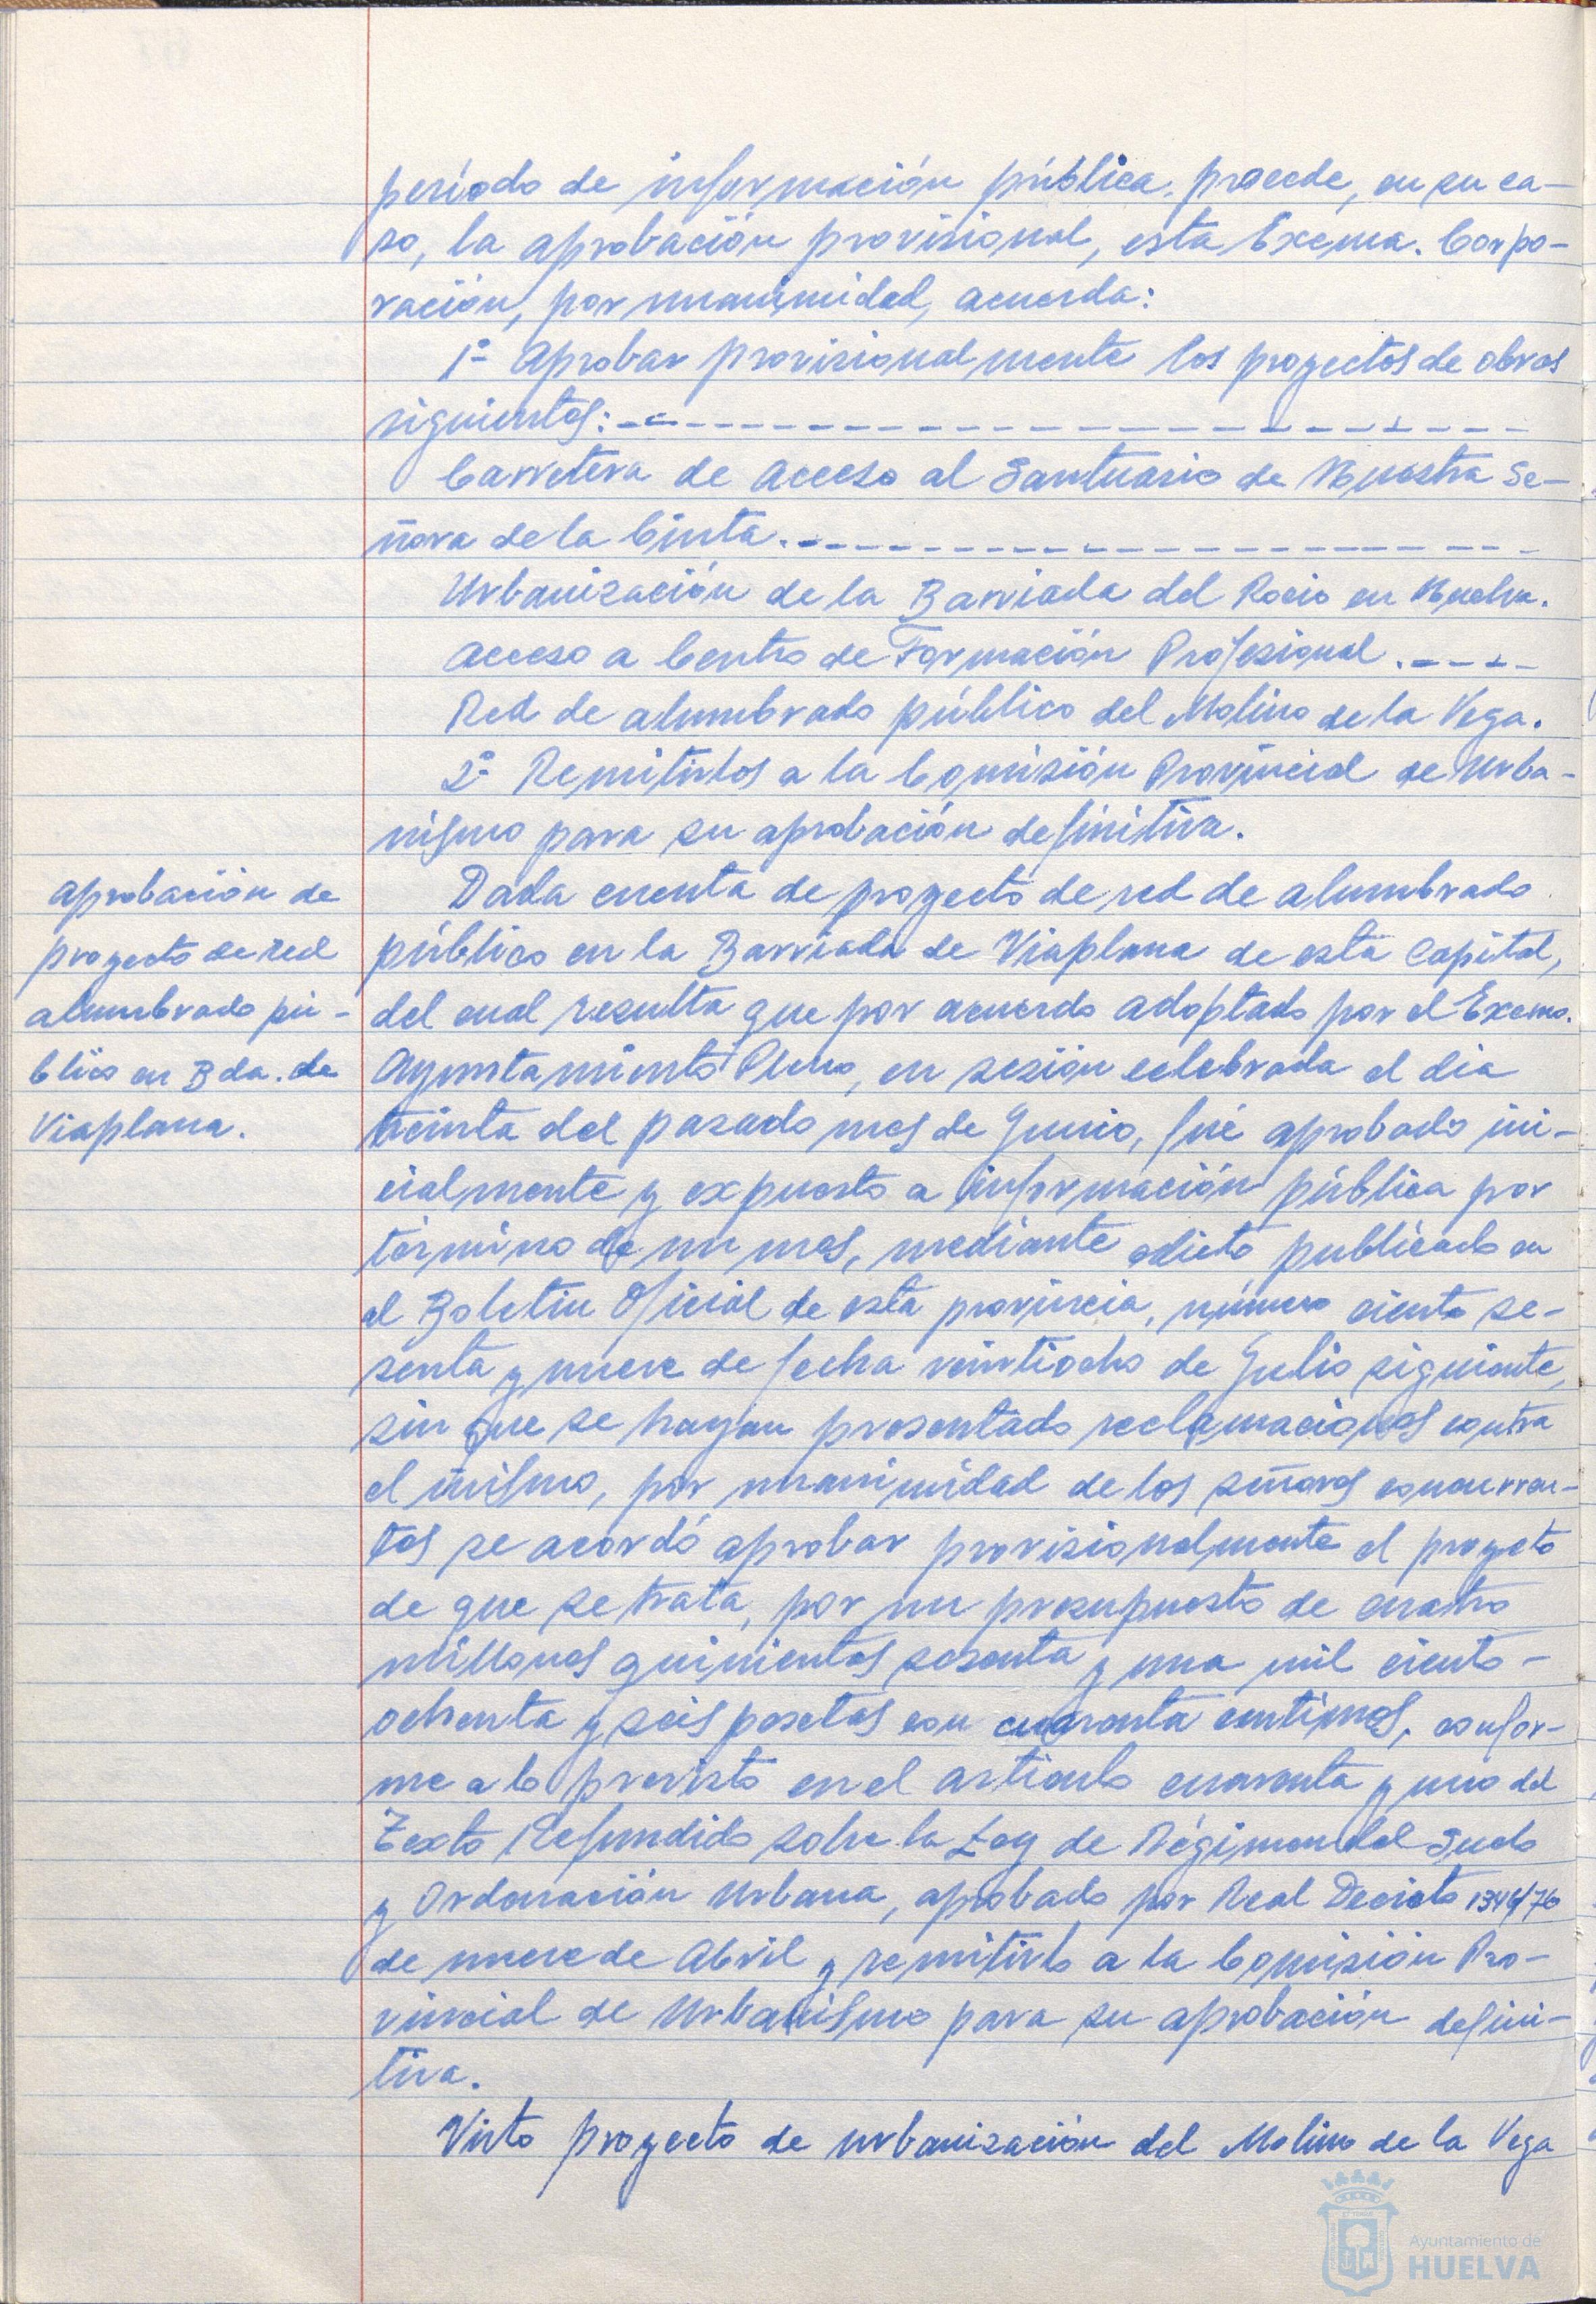 período de información pública, procede, en su ca-
so, la aprobación provisional, esta Excma. Corpo-
ración, por unanimidad, acuerda:
1º Aprobar provisionalmente los proyectos de obras
siguientes:
Carretera de Acceso al Santuario de Nuestra Se-
ñora de la Cinta.
Urbanización de la Barriada del Rocio en Huelva.
Acceso a Centro de Formación Profesional.
Red de alumbrado público del Molino de la Vega.
2º Remitirlos a la Comisión Provincial de Urba-
nismo para su aprobación definitiva.
Aprobación de
proyecto de red
alumbrado pú-
blico en Bda. de
Viaplana.
Dada cuenta de proyecto de red de alumbrado
público en la Barriada de Viaplana de esta Capital,
del cual resulta que por acuerdo adoptado por el Excmo.
Ayuntamiento Pleno, en sesión celebrada el dia
treinta del pasado mes de Junio, fué aprobado ini-
cialmente y expuesto a información pública por
término de un mes, mediante edicto publicado en
el Boletin Oficial de esta provincia, número ciento se-
senta y nueve de fecha veintiocho de Julio siguiente,
sin que se hayan presentado reclamaciones contra
el mismo, por unanimidad de los señores concurren-
tes se acordó aprobar provisionalmente el proyecto
de que se trata, por un presupuesto de cuatro
millones quinientos sesenta y una mil ciento-
ochenta y seis pesetas con cuarenta centimos, confor-
me a lo previsto en el articulo cuarenta y uno del
Texto Refundido sobre la Ley de Régimen del Suelo
y Ordenación Urbana, aprobado por Real Decreto 1346/76
de nueve de Abril y remitirlo a la Comisión Pro-
vincial de Urbanismo para su aprobación defini-
tiva.
Visto proyecto de urbanización del Molino de la Vega
Ayuntamiento de
HUELVA